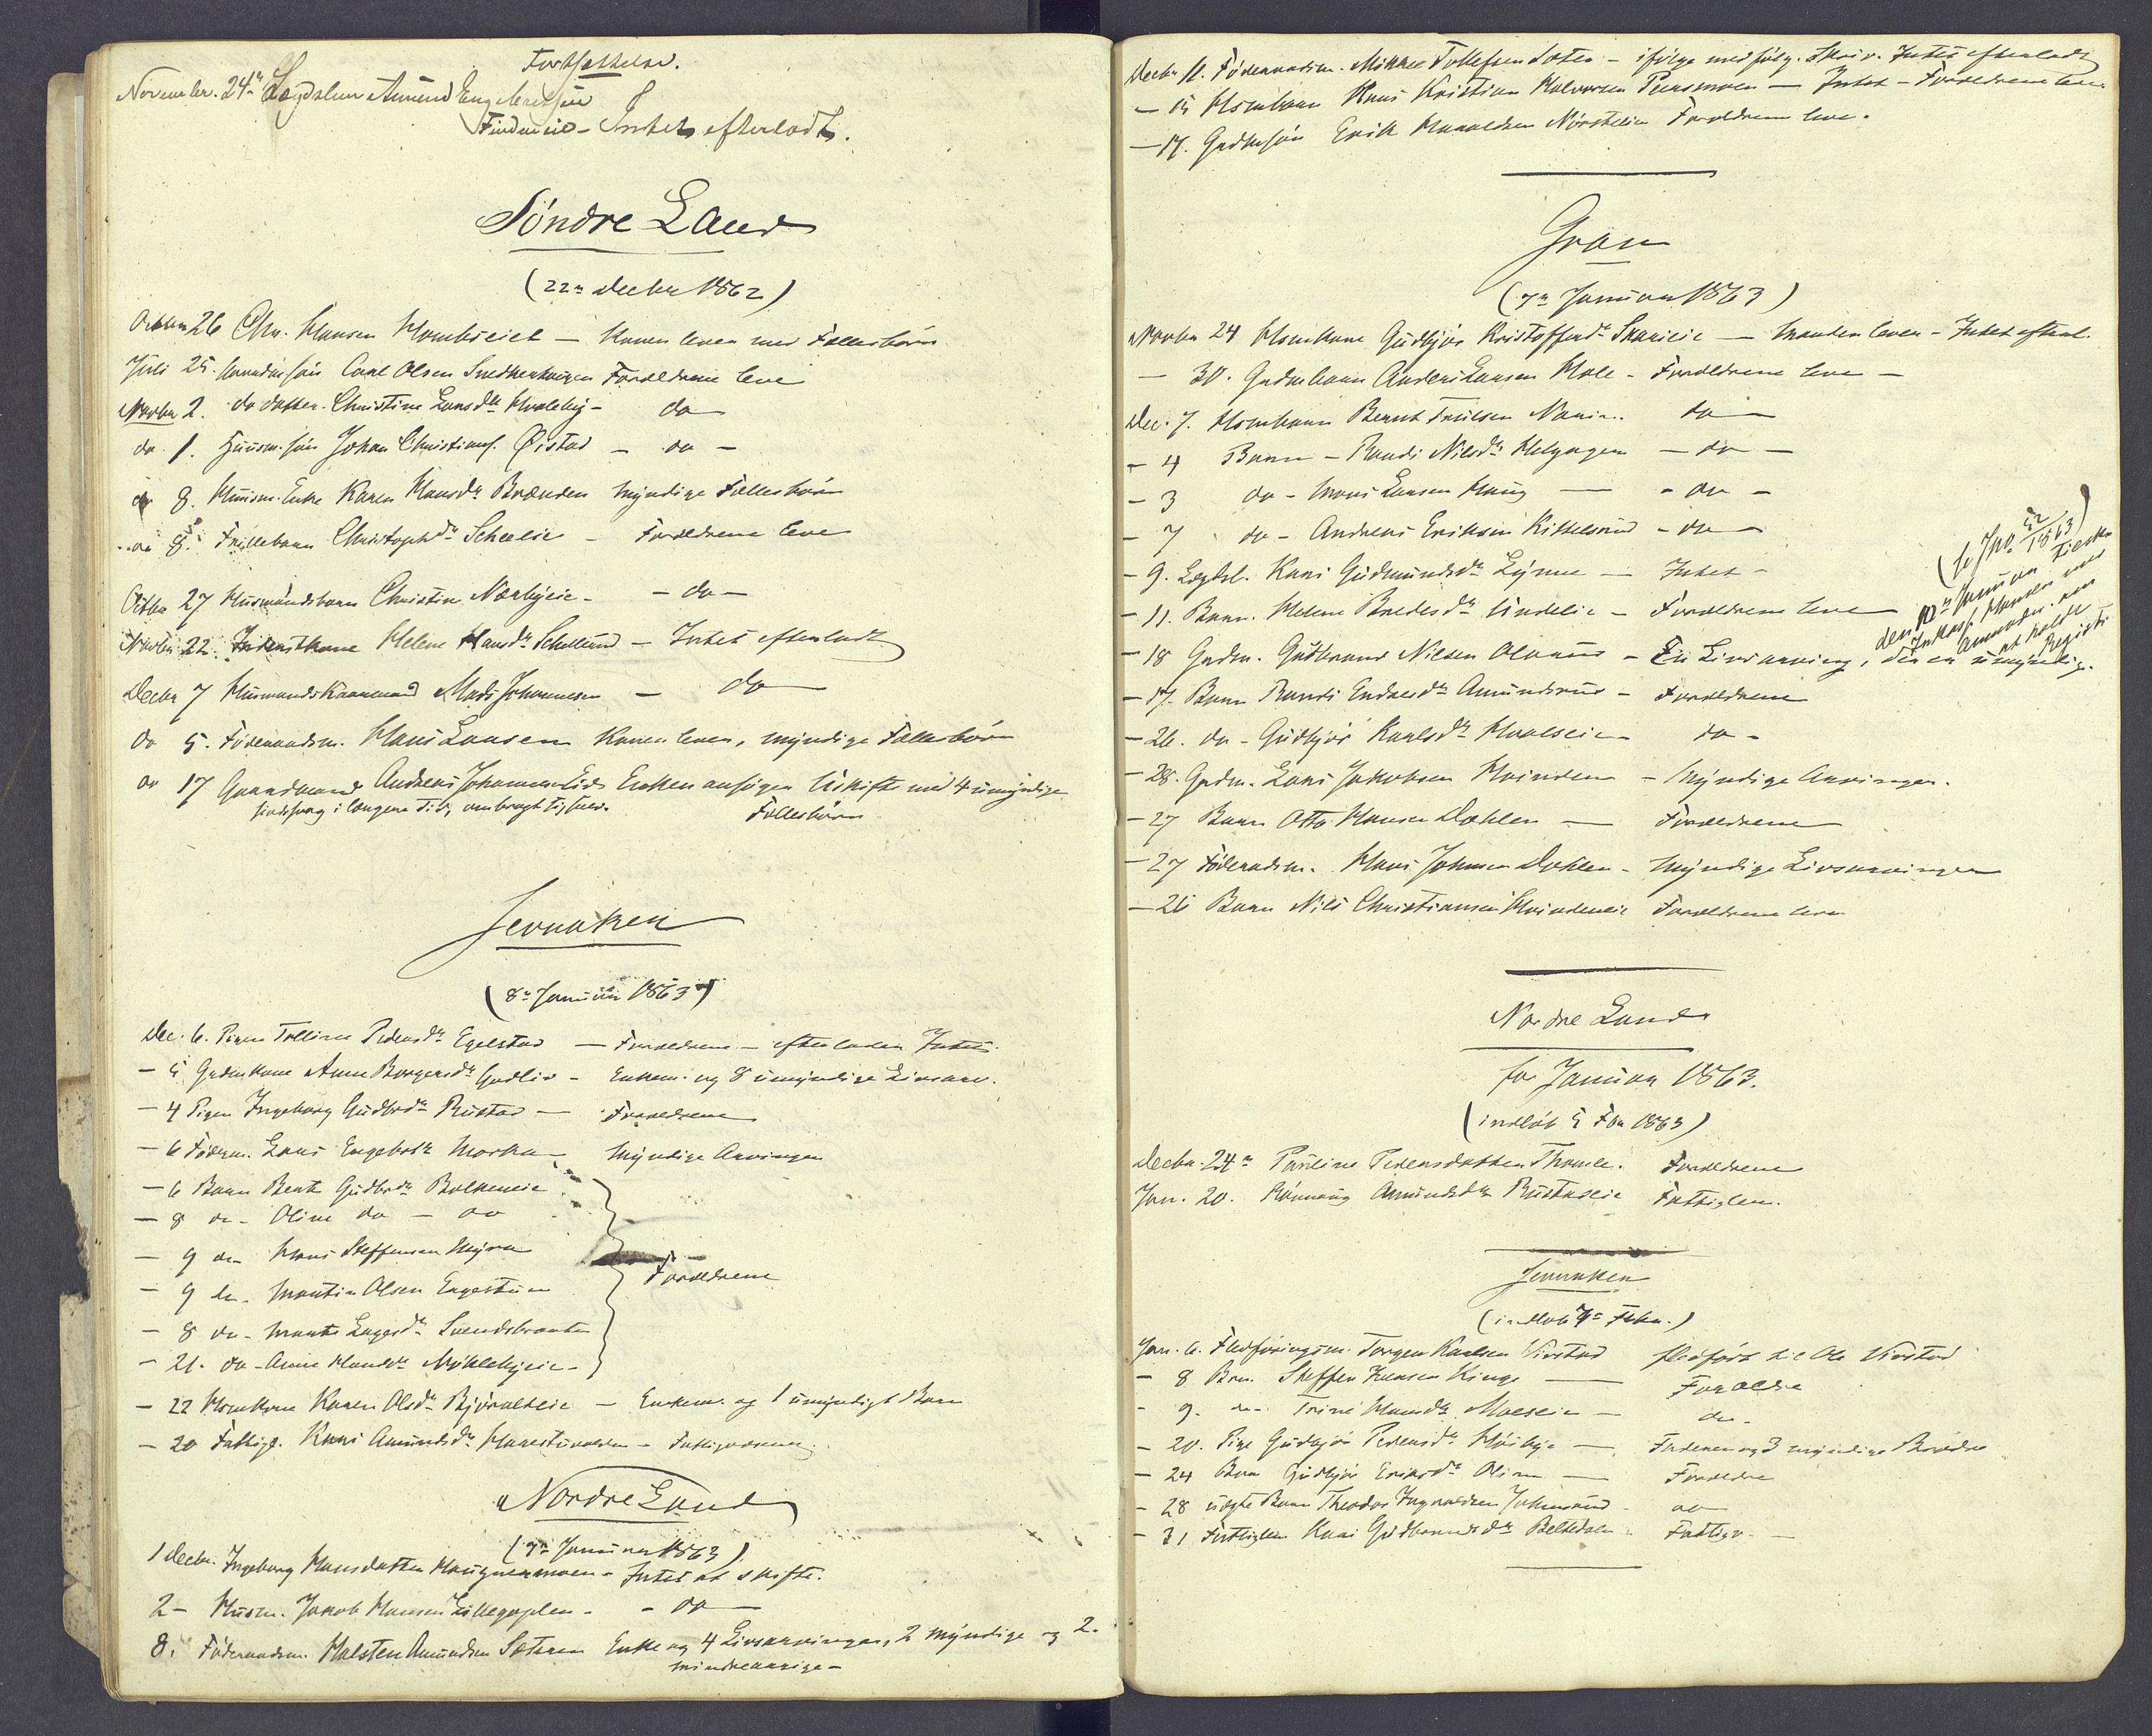 Fortsættelse.
November. 24de Lægdslem Amund Engebretsen
Findneie - Intet efterladt.
Söndre Land
(22de Decbr 1862)
Octbr 26 Chr. Hansen Hombseiet — Konen lever med Fællesbörn
Juli 25. Gaardm. sön Carl Olsen Snedkerhaugen Forældrene leve
Novbr 2. do datter. Christine Larsdtr Hvaleby - do
do 1. Huusm. sön Johan Christians. Öistad - do -
do 8. Huusm. Enke Karen Hansdtr Brænden Myndige Fællesbörn
do 8. Tvillebarn Christophdtr Scheelie - Forældrene leve
Octbr 27 Husmandsbarn Christin Nærbyeie - - do -
Novbr 22. Inderstkone Helene Hansdtr Schellund - Intet efterladt
Decbr 7 Husmands Kaarmand Mads Johannesen - do
do 5. Föderaadsm. Hans Larsen Konen lever, myndige Fællesbörn
do 17 Gaardmand Andreas Johannesen Lid Enken ansöger Uskifte med 4 umyndige
sindssvag i længere Tid, ombragt sig selv. Fællesbörn
Jevnaker
(8de Januar 1863)
Dec. 6. Pigen Tolline Pedersdtr Egelstad — Forældrene - efterlader Intet
- 5 Gaardm. kone Anne Borgersdtr Godlie - Enkem. og 8 umyndige Livsarv.
- 4 Pigen Ingeborg Gudbrdtr Rustad — Forældrene
- 6 Föderm. Lars Engebrets. Morka Myndige Arvinger
- 6 Barn Berte Gudbrdtr Bolkeneie
- 8 do - Oline do - do
- 9 do Hans Steffensen Myra
- 9 do. Martin Olsen Engestuen
- 8 do - Marte Engersdtr Svendsbraaten
- 21. do - Anne Hansdtr Möllebyeie -
Forældrene
- 22 Huusm. kone Karen Olsdtr Björalteie - Enkem. og 1 umyndigt Barn
- 20 Fattigl. Kari Amundsdtr Harestuvalden - Fattigvæsenet
Nordre Land
(7de Januar 1863)
1 Decbr. Ingeborg Hansdatter Haugnermoen - Intet at skifte.
2 - Husm. Jakob Hansen Lillegaplen - - do -
8. Föderaadsm. Halsten Amundsen Sæteren Enke og 4 Livsarvinger, 2 myndige og 2.
mindreaarige -
Decbr 11. Föderaadsm. Mikkel Tollefsen Sater - ifölge medfölg. Skriv. Intet efterladt
- 15 Hsmbarn Hans Kristian Halvorsen Peersmoen - Intet - Forældrene leve
- 17. Gaardm. sön Erik Haraldsen Nörstelien Forældrene leve.
Gran
(7de Januar 1863)
Novbr 24 Hsmkone Gudbjör Kristoffersdtr Skarieie — Manden lever - Intet efterl.
- 30. Gaardm. barn Anders Larsen Hole - Forældrene leve -
Dec. 7. Hsmbarn Bernt Trulsen do
- 4 Barn - Randi Nilsdtr Helgagen - do -
- 3 do - Hans Larsen Haug — - do -
- 7 do - Andreas Eriksen Kittelsrud - do
- 9. Lægdsl. Kari Gudmundsdtr Lynne — Intet -
- 11. Barn. Helene Bredesdtr Lindelie - Forældrene leve
- 18 Gaardm. Gudbrand Nilsen - En Livsarving, der er umyndig.
(se Jno. 52/1863)
den 10de Januar
Amund
at holde
Registr
- 17. Barn Randi Endresdtr Amundsrud - Forældrene
- 26. do - Gudbjör Karlsdtr Hvalseie - do -
- 28. Gaardm. Lars Jakobsen Hvinden - Myndige Arvinger.
- 27 Barn Otto Hansen Dæhlen — Forældrene
- 27 Föderaadsm. Hans Johnsen Dæhlen - Myndige Livsarvinger
- 26 Barn Nils Christiansen Hvindeneie Forældrene leve
Nordre Land
for Januar 1863.
(indlöb 5 Fbr 1863)
Decbr. 24de Pauline Pedersdatter Thomle. Forældrene
Jan. 20. Rönnaug Amundsdtr Rustaseie Fattiglem.
Jevnaker
(indlöb 7de Febr.)
Jan. 6. Fledföringsm. Torger Karlsen Virstad fledfört til Ole Virstad
- 8 Brn. Steffen Hansen Kinge — Forældre
- 9. do. Trine Hansdtr Moeseie — do -
- 20. Pige Gudbjör Pedersdtr Höibye — Faderen og 3 myndige Brödre
- 24 Barn Gudbjör Eriksdtr Olimb — Forældre
- 28 uægte Barn Theodor Ingvaldsen Johnsrud - do
- 31 Fattiglem Kari Gudbrandsdtr Beltedalen - Fattigv. -